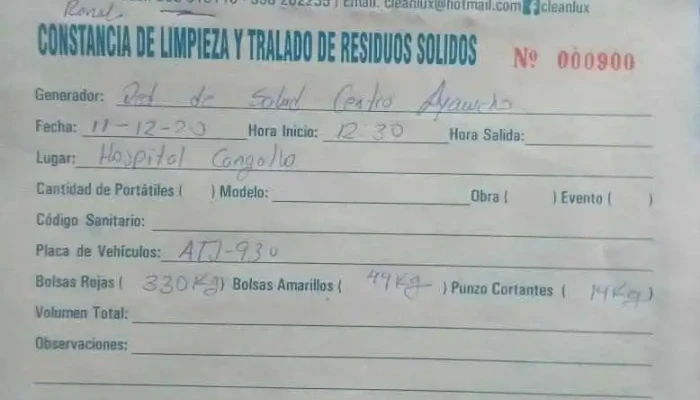 Email: cleanlux@hotmail.com cleanlux
CONSTANCIA DE LIMPIEZA Y TRALADO DE RESIDUOS SOLIDOS Nº 000900
Generador: Red de Salud Centro Ayacucho
Fecha: 11-12-20 Hora Inicio: 12:30 Hora Salida:
Lugar: Hospital Cangallo
Cantidad de Portátiles ( ) Modelo: Obra ( ) Evento ( )
Código Sanitario:
Placa de Vehículos: ATJ-930
Bolsas Rojas ( 330Kg) Bolsas Amarillos ( 44Kg ) Punzo Cortantes ( 14Kg)
Volumen Total:
Observaciones: